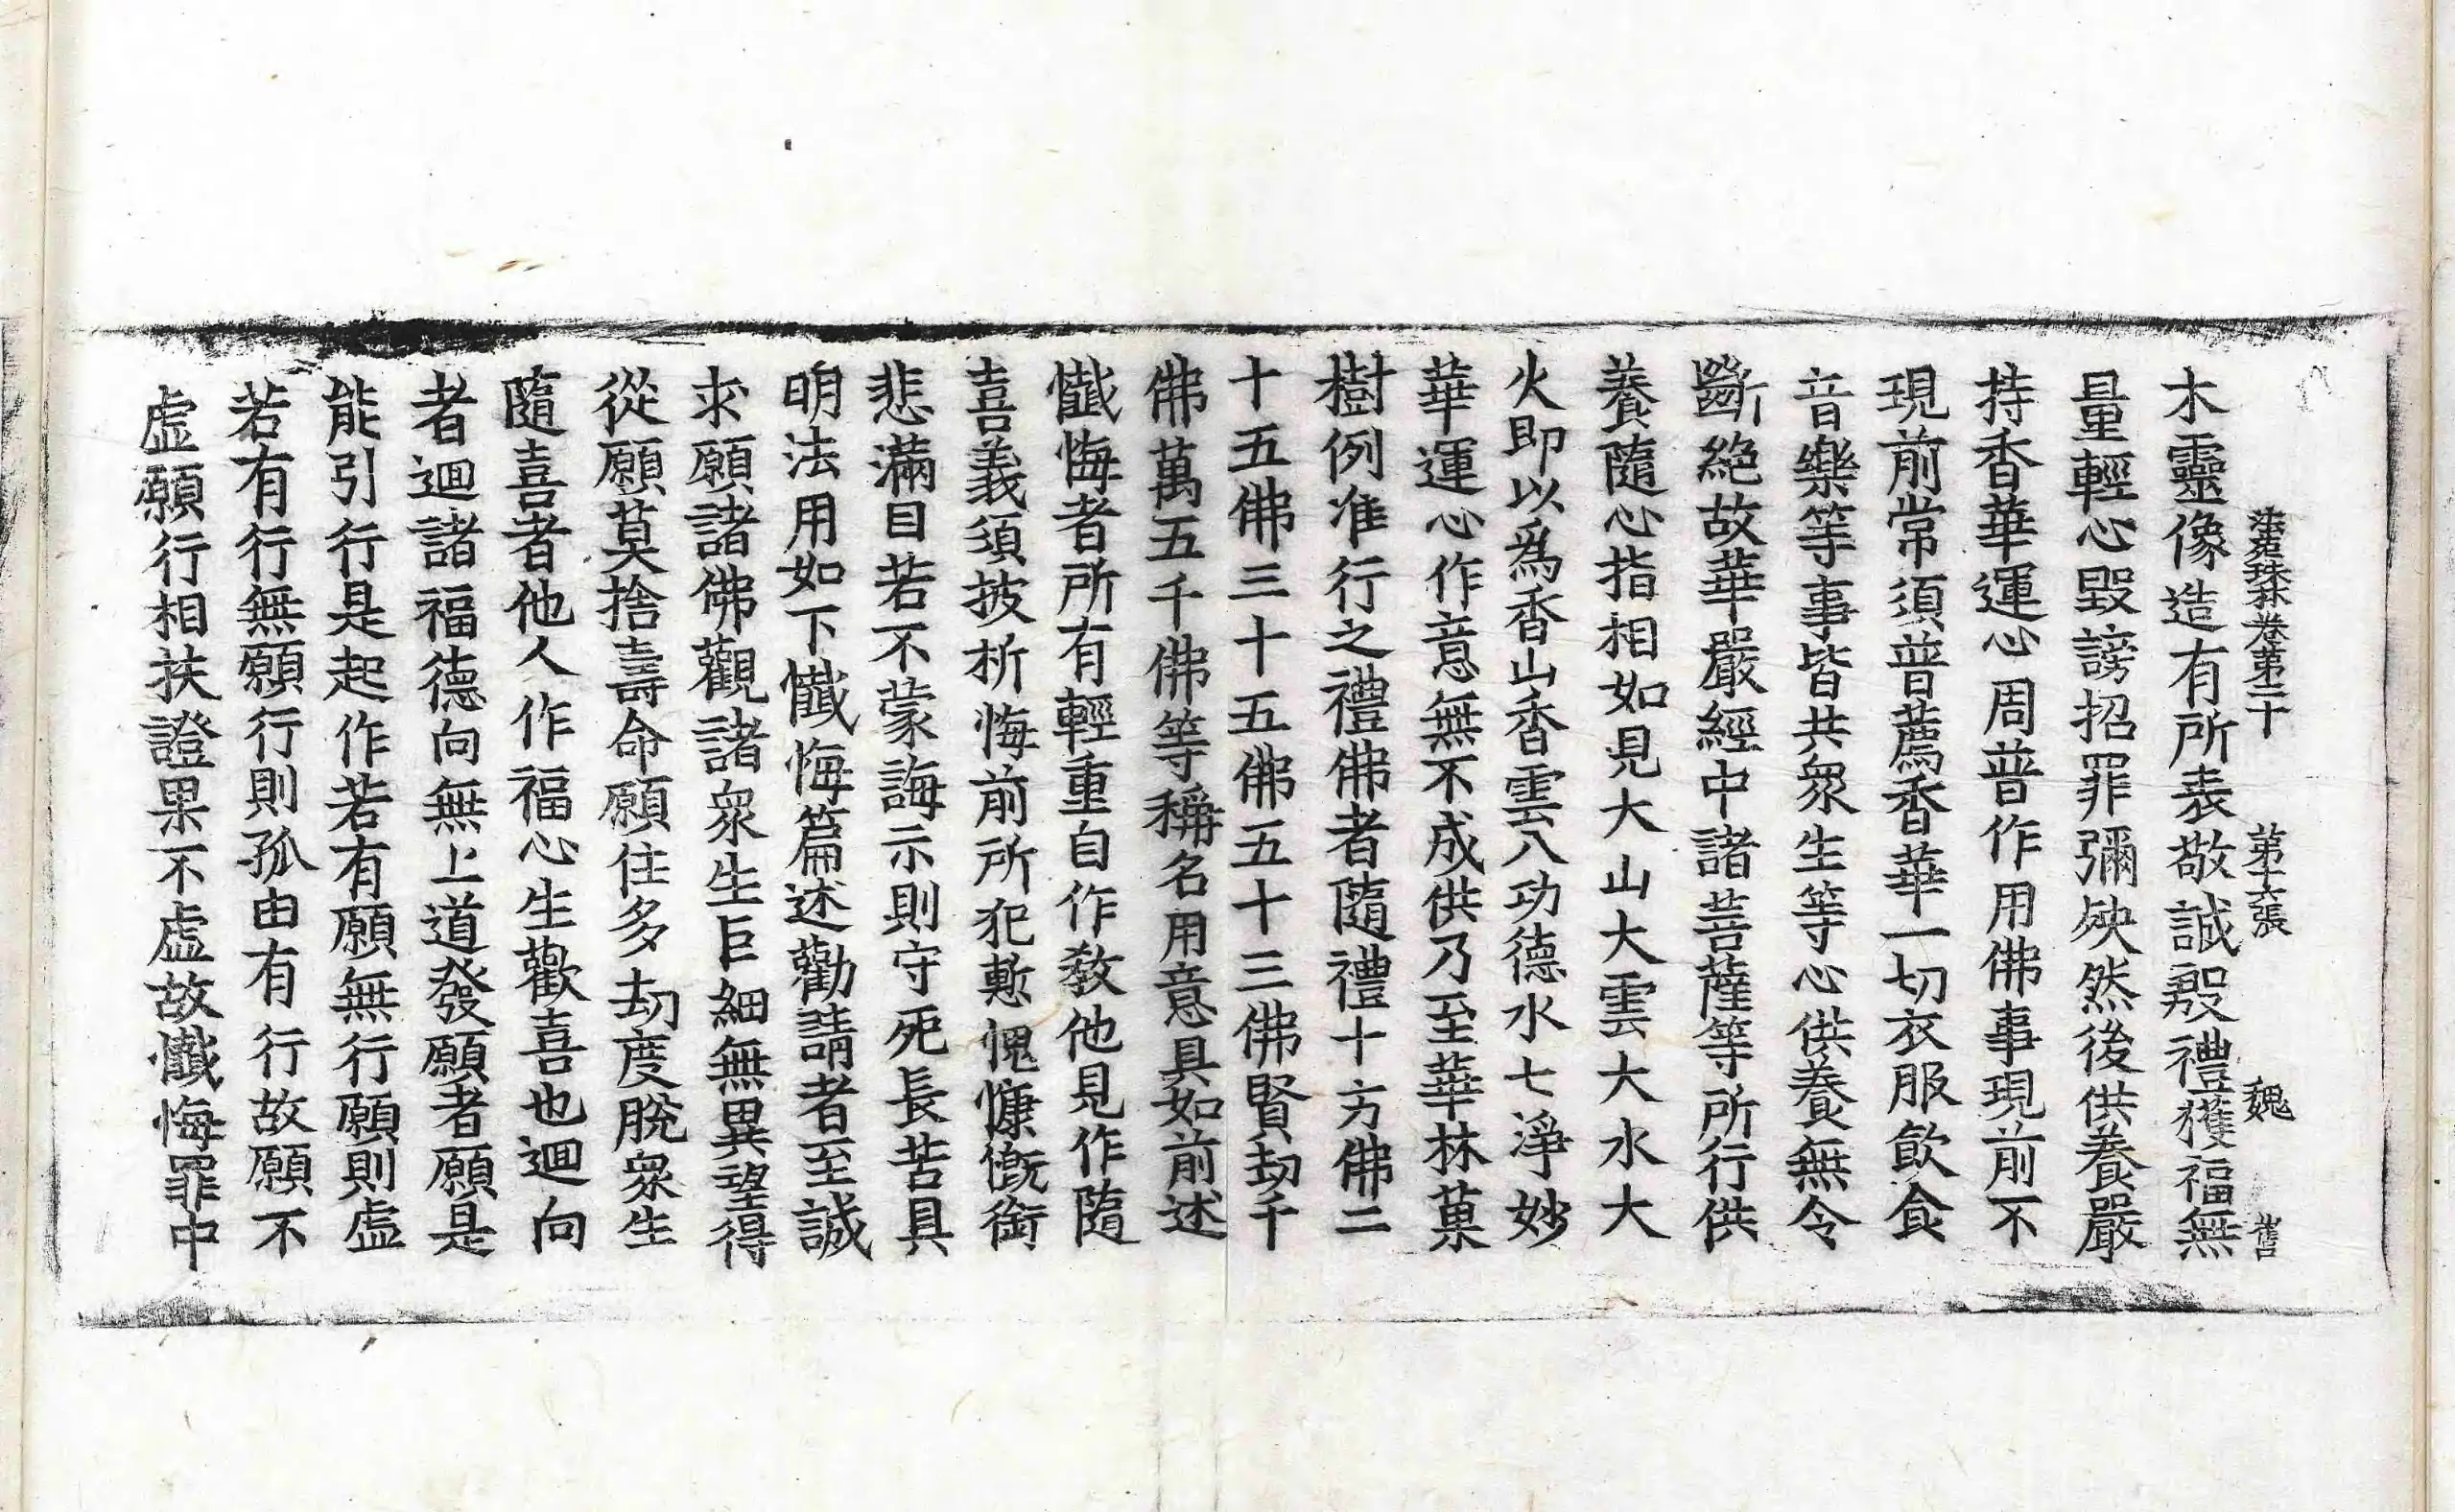 法苑珠林卷第二十 第十六張 魏 舊
木靈像造有所表敬誠殷禮獲福無
量輕心毀謗招罪彌殃然後供養嚴
持香華運心周普作用佛事現前不
現前常須普薦香華一切衣服飲食
音樂等事皆共衆生等心供養無令
斷絶故華嚴經中諸菩薩等所行供
養隨心指相如見大山大雲大水大
火即以爲香山香雲八功德水七淨妙
華運心作意無不成供乃至華林菓
樹例准行之禮佛者隨禮十方佛二
十五佛三十五佛五十三佛賢劫千
佛萬五千佛等稱名用意具如前述
懺悔者所有輕重自作敎他見作隨
喜義須披析悔前所犯慙愧慷慨銜
悲滿目若不蒙誨示則守死長苦具
明法用如下懺悔篇述勸請者至誠
求願諸佛觀諸衆生巨細無異望得
從願莫捨壽命願住多劫度脫衆生
隨喜者他人作福心生歡喜也迴向
者迴諸福德向無上道發願者願是
能引行是起作若有願無行願則虛
若有行無願行則孤由有行故願不
虛願行相扶證果不虛故懺悔罪中